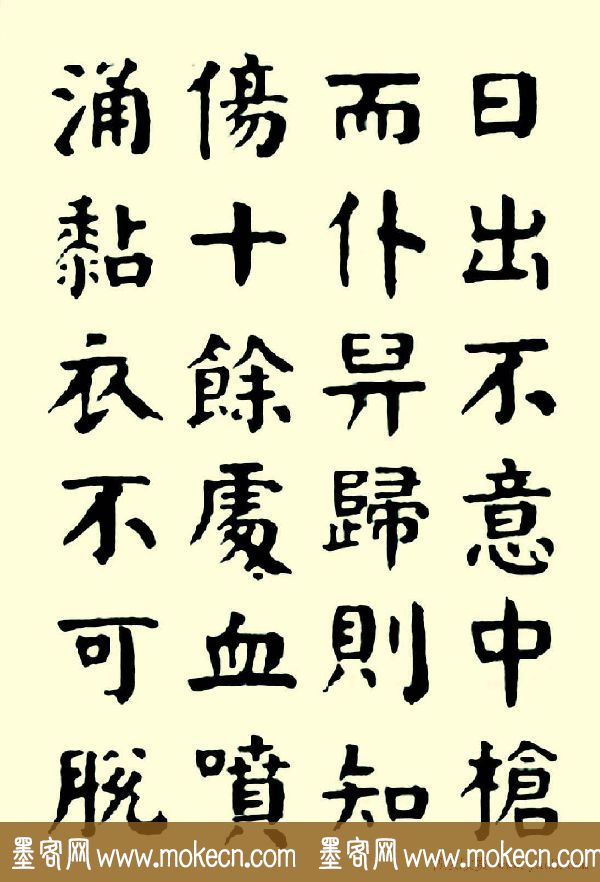 日出不意中槍
而仆舁歸則知
傷十餘處血噴
涌黏衣不可脫
墨客网 www.mokecn.com 墨客网 www.mokecn.com